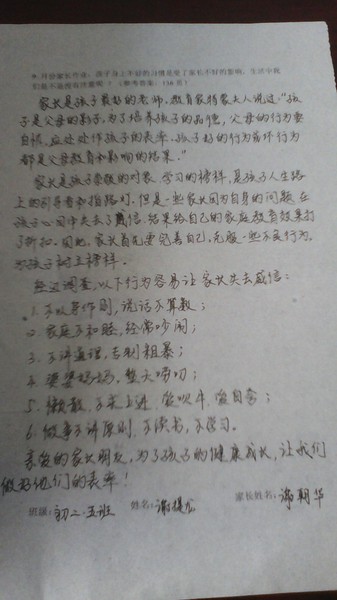 月份家长作业：孩子身上不好的习惯是受了家长不好的影响，生活中我
们是不是没有注意呢？（参考答案：156页）
家长是孩子最好的老师。教育家特家夫人说过："孩
子是父母的影子，为了培养孩子的品德，父母的行为要
自慎，应处处作孩子的表率。孩子好的行为或坏行为
都是父母教育和影响的结果。"
家长是孩子崇敬的对象、学习的榜样，是孩子人生路
上的引导者和指路灯。但是一些家长因为自身的问题，在
孩子心目中失去了威信，结果给自己的家庭教育效果打
了折扣。因此，家长首先要完善自己，克服一些不良行为，
对孩子树立榜样。
经过调查，以下行为容易让家长失去威信：
1. 不以身作则，说话不算数；
2. 家庭不和睦，经常吵闹；
3. 不讲道理，专制粗暴；
4. 婆婆妈妈，整天唠叨；
5. 懒散，不求上进，爱吹牛，爱自夸；
6. 做事不讲原则，不读书，不学习。
亲爱的家长朋友，为了孩子的健康成长，让我们
做好他们的表率！
班级：初二.五班 姓名：谢 家长姓名：谢朝华